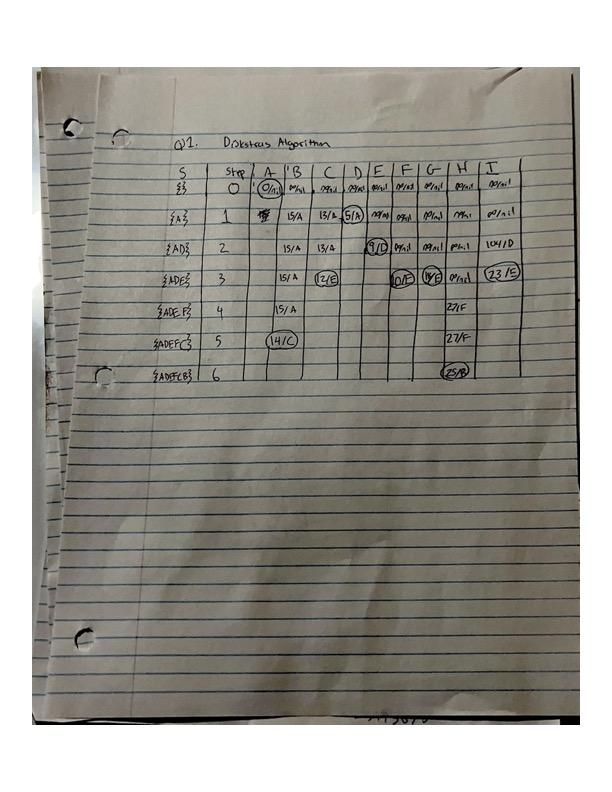 Q1. Dijkstras Algorithm
S Step A B C D E F G H I
{} 0 0/nil ∞/nil ∞/nil ∞/nil ∞/nil ∞/nil ∞/nil ∞/nil ∞/nil
{A} 1 15/A 13/A 5/A ∞/nil ∞/nil ∞/nil ∞/nil ∞/nil
{AD} 2 15/A 13/A 9/D ∞/nil ∞/nil ∞/nil 104/D
{ADE} 3 15/A 12/E 10/E /E ∞/nil 23/E
{ADEF} 4 15/A 27/F
{ADEFC} 5 14/C 27/F
{ADEFCB} 6 25/B